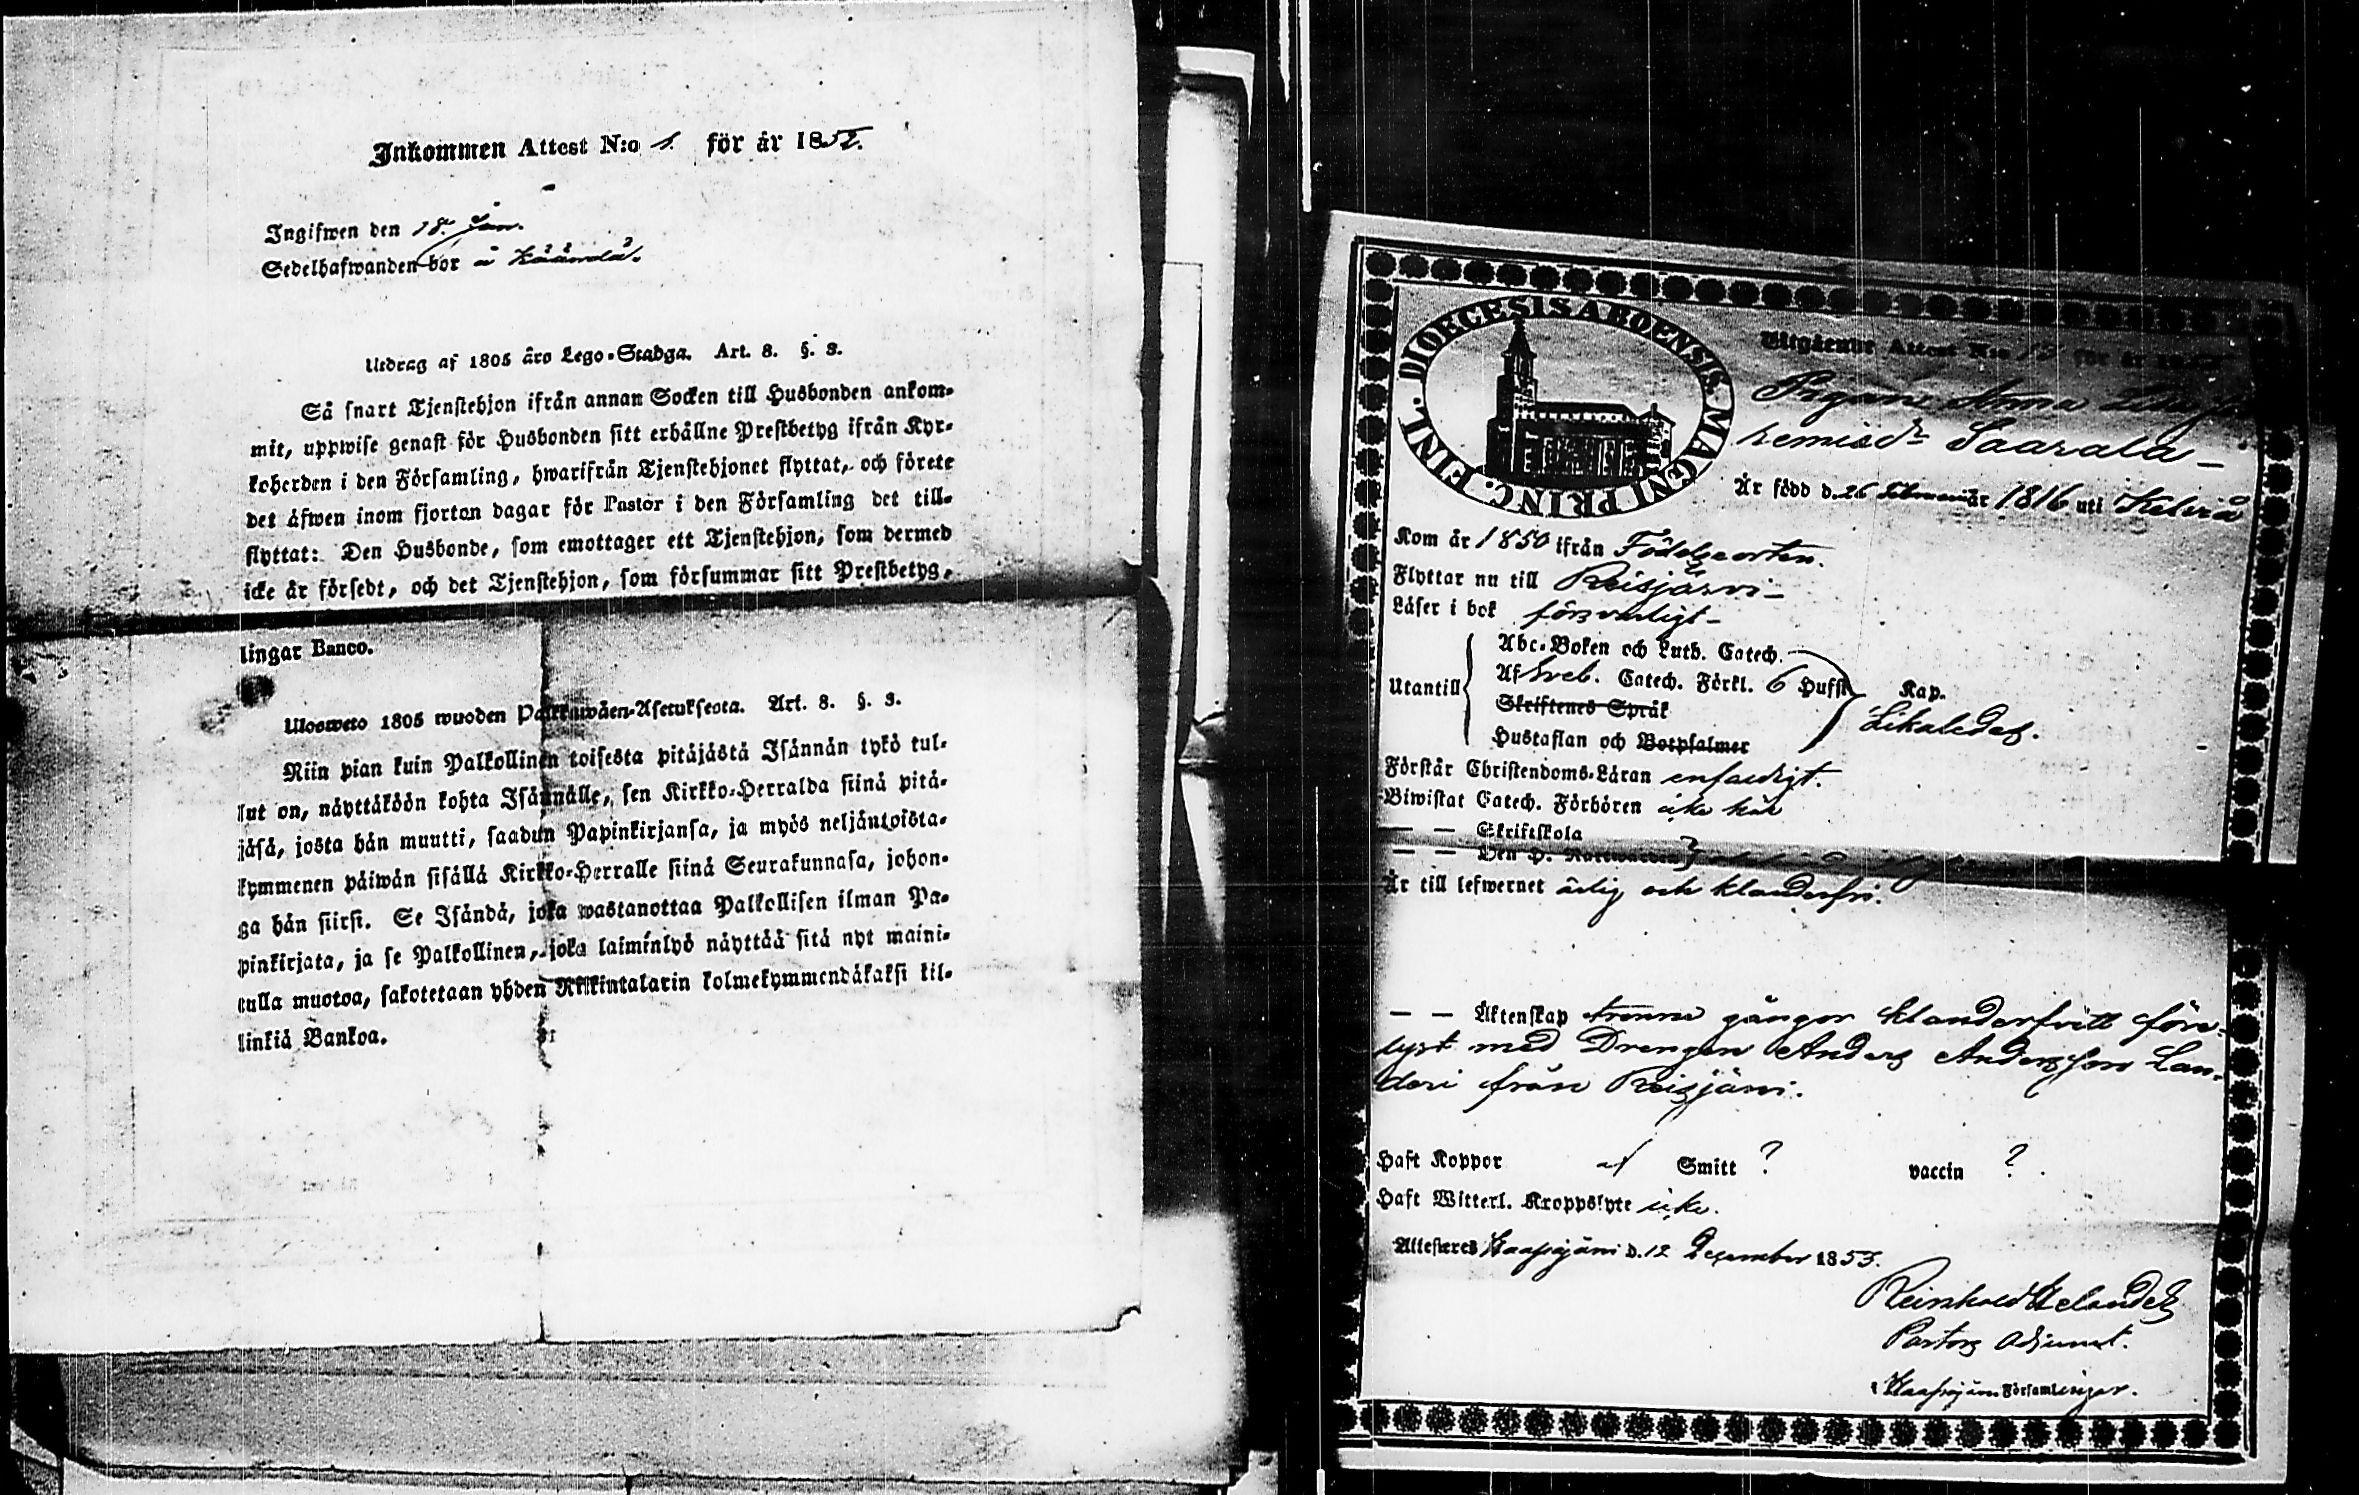 Inkommen Attest N:o 1. för år 1852.
Ingifwen den 18. Jan.
Sedelhafwanden bor å Kääntä.
Utdrag af 1805 års Lego-Stadga. Art. 8. §. 3.
Så snart Tjenstehjon ifrån annan Socken till Husbonden ankom-
mit, uppwise genast för Husbonden sitt erhållne Prestbetyg ifrån Kyr-
koherden i den Församling, hwarifrån Tjenstehjonet flyttat, och förete
det äfwen inom fjorton dagar för Pastor i den Församling det till-
flyttat: Den Husbonde, som emottager ett Tjenstehjon, som dermed
icke är försedt, och det Tjenstehjon, som försummar sitt Prestbetyg,
lingar Banco.
Ulosweto 1805 wuoden Palkkawäen-Asetuksesta. Art. 8. §. 3.
Niin pian kuin Palkollinen toisesta pitäjästä Isännän tykö tul-
lut on, näyttäköön kohta Isännälle, sen Kirkko-Herralda siinä pitä-
jäsä, josta hän muutti, saadun Papinkirjansa, ja myös neljäntoista-
kymmenen päiwän sisällä Kirkko-Herralle siinä Seurakunnasa, johon-
ga hän siirsi. Se Isändä, joka wastanottaa Palkollisen ilman Pa-
pinkirjata, ja se Palkollinen, joka laiminlyö näyttää sitä nyt maini-
tulla muotoa, sakotetaan yhden Riikintalarin kolmekymmendäkaksi kil-
linkiä Bankoa.
DIOECESIS ABOENSIS MAGNI PRINC. FINL.
Utgående Attest N:o för år
Pigan Anna
Saarala
Är född d. 26 Februari år 1816 uti Kelviå
Kom år 1850 ifrån Födelseorten.
Flyttar nu till Reisjärvi
Läser i bok försvarligt
Utantill
Abc-Boken och Luth. Catech.
Af Sveb. Catech. Förkl. 6 Hufst. Kap.
Skriftenes Språk
Likaledes.
Hustaflan och Botpsalmer
Förstår Christendoms-Läran enfaldigt.
Biwistat Catech. Förhören icke här
— — Skriftskola
— — Den H. Nattwarden
Är till lefwernet ärlig och klanderfri.
— — Äktenskap trenne gånger klanderfritt före-
lyst med Drengen Anders Andersson Lan-
deri från Reisjärvi.
Haft Koppor af Smitt ? vaccin ?
Haft Witterl. Kroppslyte icke.
Attesteres d. 12 December 1853.
Reinhold Helander
Pastors Adjunct.
i Församlingar.